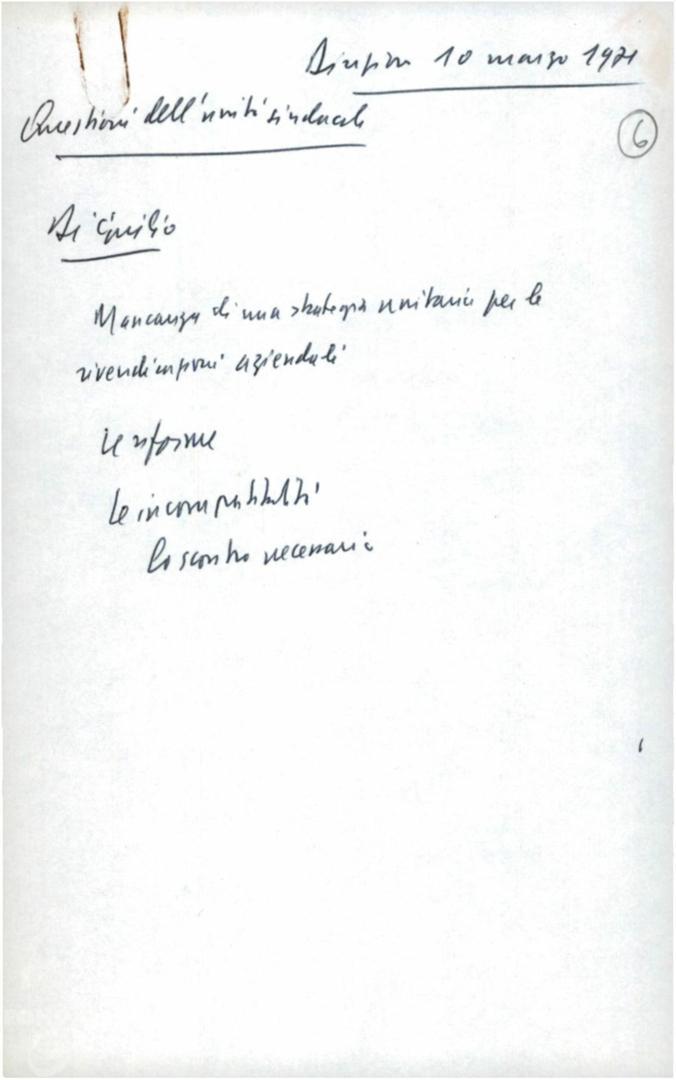 Direzione 10 marzo 1971
Questioni dell'unità sindacale
6
Di Giulio
Mancanza di una strategia unitaria per le
rivendicazioni aziendali
Le riforme
Le incompatibilità
Lo scontro necessario